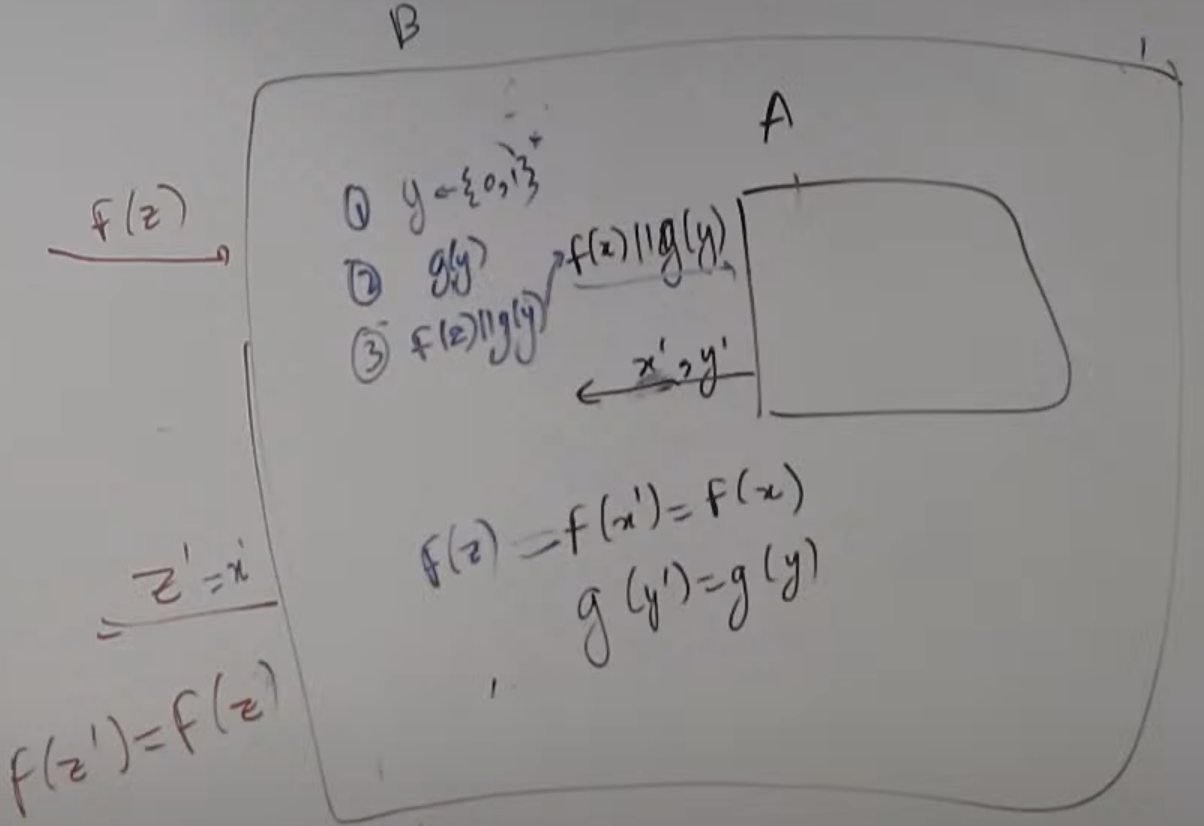 B
A
f(z)
① y ← {0,1}*
② g(y)
③ f(z)||g(y)
f(x)||g(y)
x', y'
f(z) = f(x') = f(x)
g(y') = g(y)
z' = x'
f(z') = f(z)